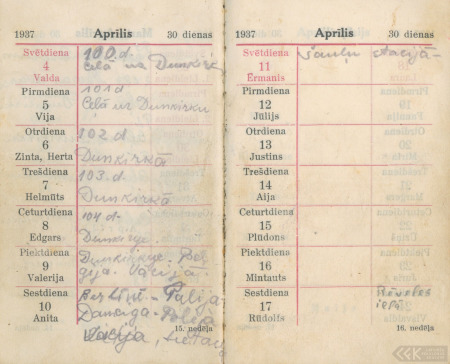 1937 Aprīlis 30 dienas
Svētdiena
4
Valda
100.d.
Ceļā uz Dunkirk
Pirmdiena
5
Vija
101.d
Ceļā uz Dunkirku
Otrdiena
6
Zinta, Herta
102.d.
Dunkirkā
Trešdiena
7
Helmūts
103.d.
Dunkirkā
Ceturtdiena
8
Edgars
104.d.
Piektdiena
9
Valerija
Vācijā.
Sestdiena
10
Anita
Berlīnē -
Danciga -
15. nedēļa
1937 Aprīlis 30 dienas
Svētdiena
11
Ērmanis
stacijā -
Pirmdiena
12
Jūlijs
Otrdiena
13
Justins
Trešdiena
14
Aija
Ceturtdiena
15
Plūdons
Piektdiena
16
Mintauts
Sestdiena
17
Rūdolfs
16. nedēļa